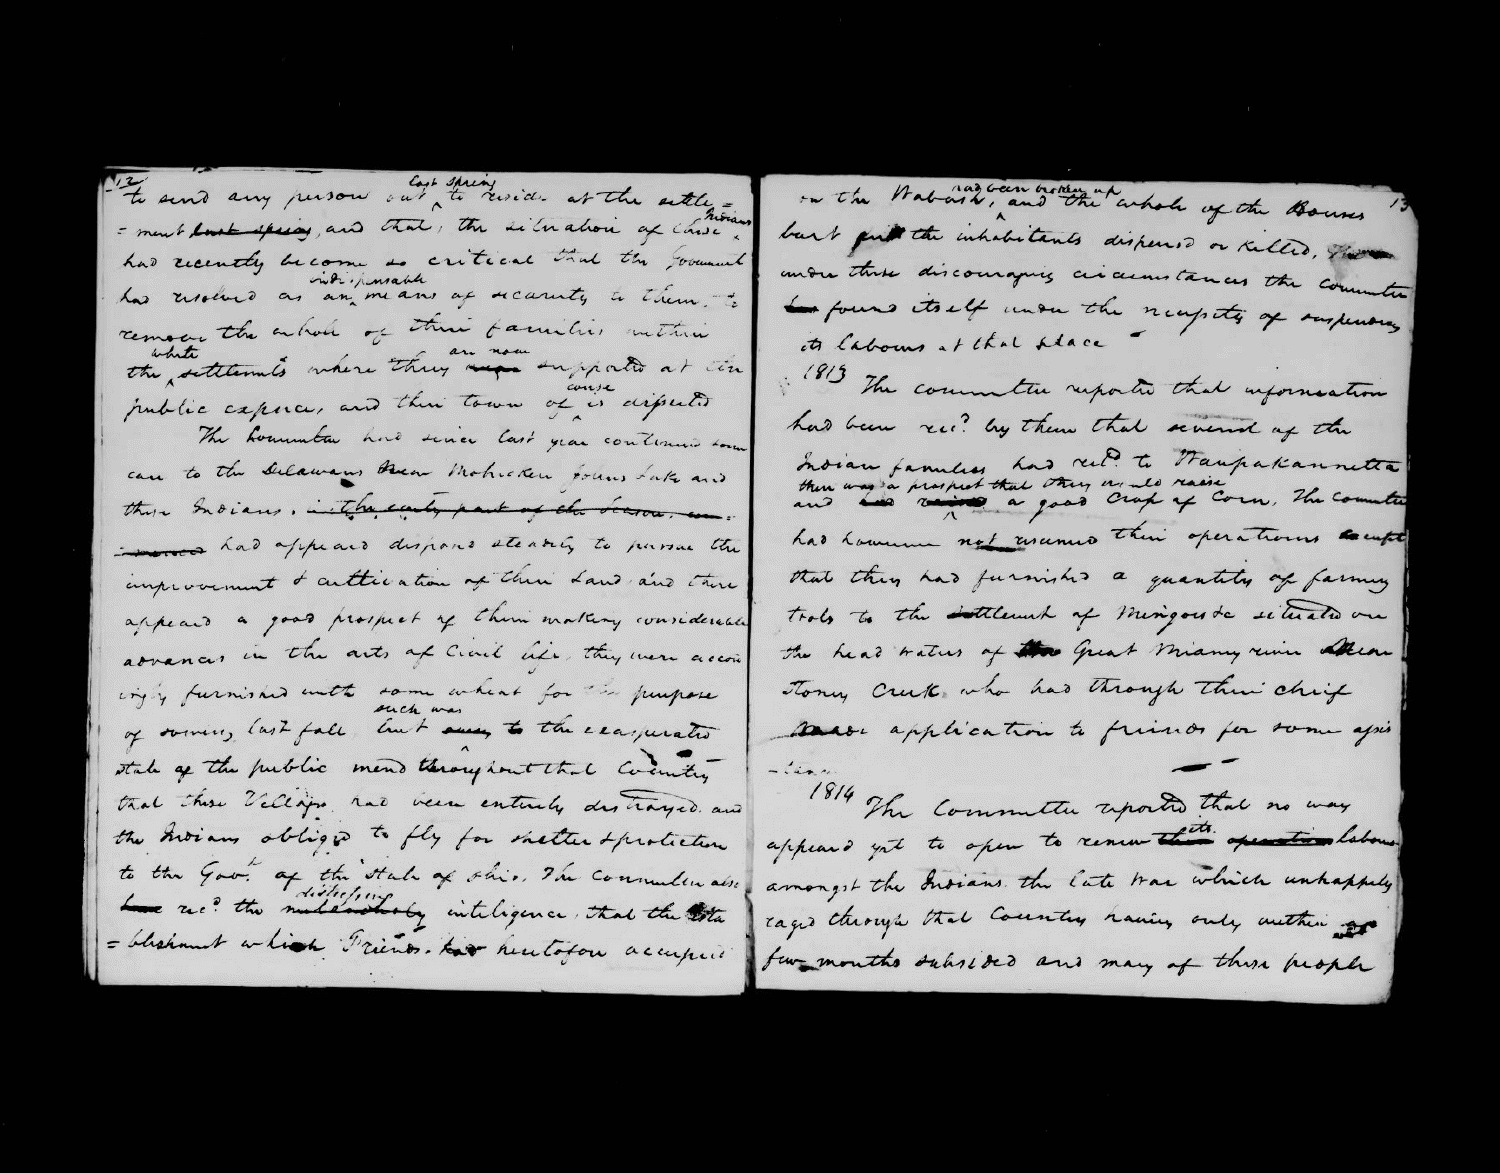 12
last spring
to send any person out to reside at the settle=
=ment last spring, and that, the situation of these Indians
had recently become so critical that the Government
indispensable
had resolved as an means of security to them, to
remove the whole of their families within
white are now
the settlements where they were supported at the
course
public expence, and their town of is disserted
The Committee had since last year continued some
care to the Delawares Near Mohicken Johns Lake and
these Indians. in the early part of the Season. com=
=menced had appeard disposed steadily to pursue the
improvement & cultivation of their Land and there
appeard a good prospect of them making considerable
advances in the arts of Civil life, they were accord
ingly furnished with some wheat for the purpose
such was
of sowing last fall but owing to the exasperated
state of the public mind throughout that Country
that these Villages had been entirely distroyed and
the Indians obliged to fly for shelter & protection
to the Govt. of the State of Ohio. The Committee also
distressing
have recd. the melancholy inteligence, that the Esta
=blishment which Friends had heretofore occupied
13
had been broken up
on the Wabash, and the whole of the Houses
burt and the inhabitants dispersd or killed.
under these discouraging circumstances the committee
has found itself under the necessity of suspending
its labours at that place
1813
The committee reported that information
had been recd. by them that several of the
Indian families had retd. to Waupakannetta
there was a prospect that they would raise
and had raised a good Crop of Corn. The Committee
had however not resumed their operations except
that they had furnished a quantity of farming
tools to the settlement of Mingoes &c situated on
the head waters of the Great Miamy river Near
Stoney Creek who had through their chief
made application to friends for some assis
-tance
1814
The Committee reported that no way
its
appeard yet to open to renew their operations labours
amongst the Indians. the late War which unhappily
raged through that Country having only within a
few months subsided and many of these people